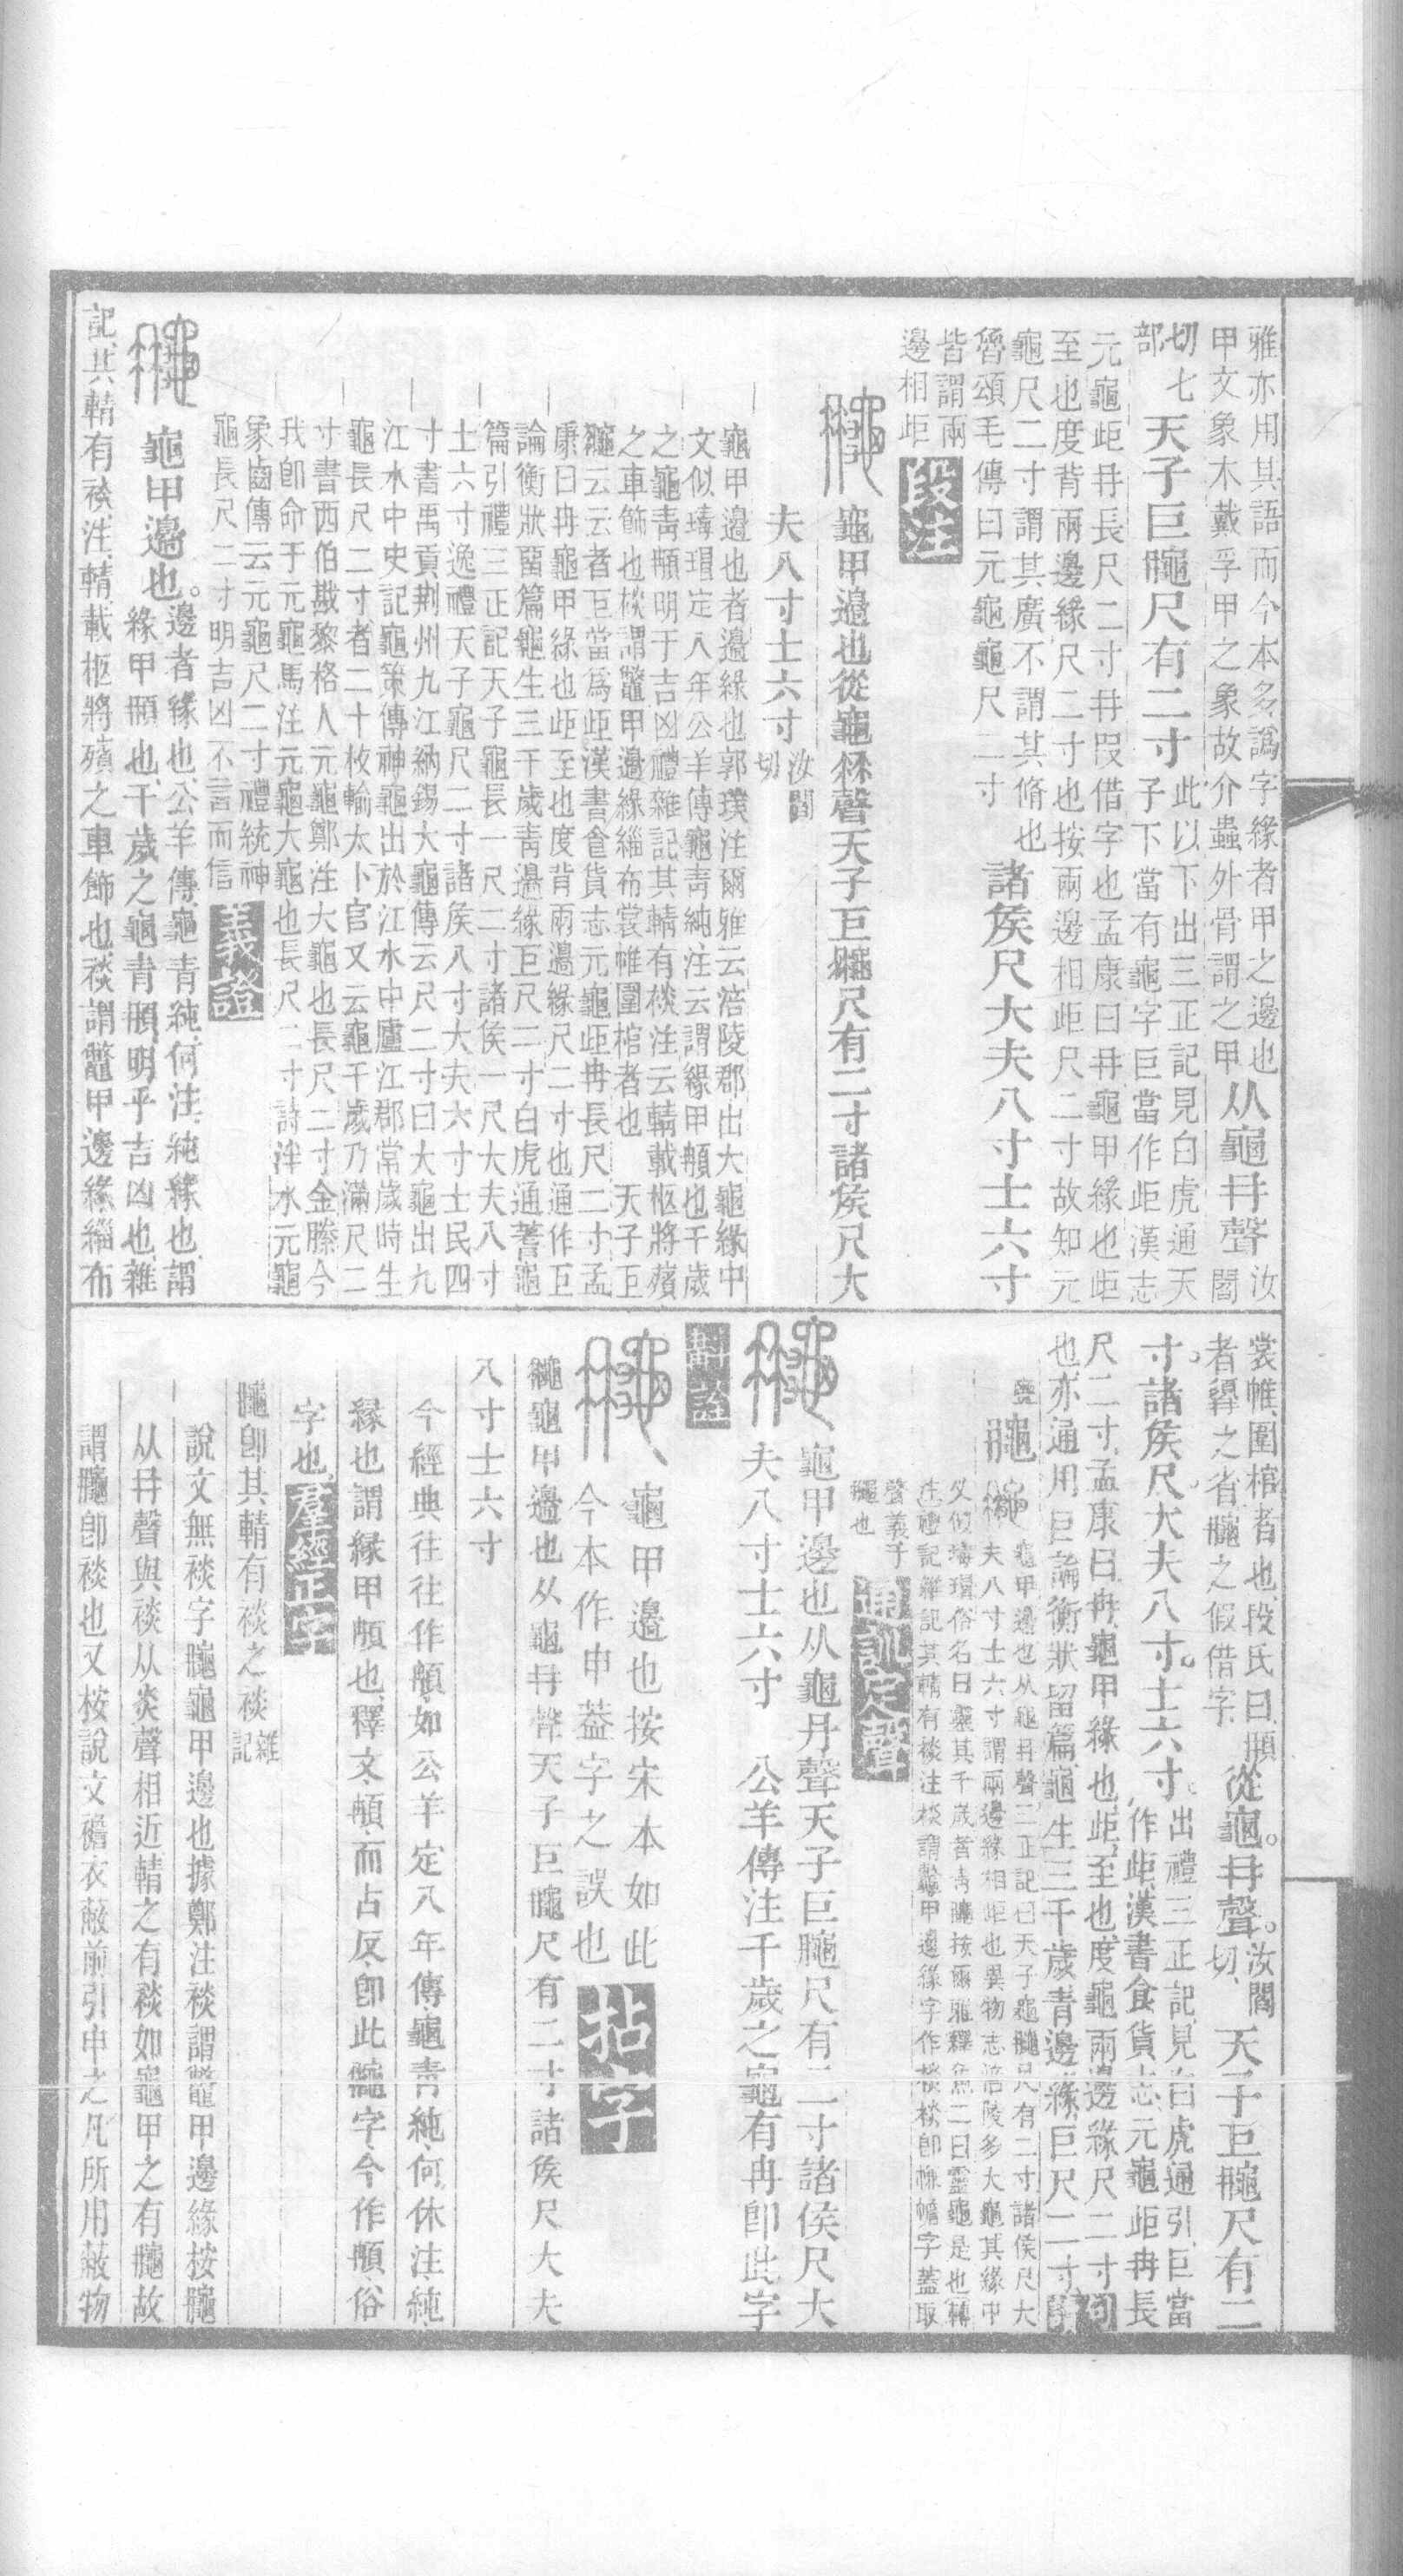 雅亦用其語而今本多譌字緣者甲之邊也
甲文象木戴孚甲之象故介蟲外骨謂之甲
从龜冄聲
汝閻
切七
部
天子巨𪚮尺有二寸
此以下出三正記見白虎通天
子下當有龜字巨當作岠漢志
元龜岠冄長尺二寸冄叚借字也孟康曰冄龜甲緣也岠
至也度背兩邊緣尺二寸也按兩邊相岠尺二寸故知元
龜尺二寸謂其廣不謂其脩也
魯頌毛傳曰元龜龜尺二寸
皆謂兩
邊相岠
諸矦尺大夫八寸士六寸
段注
龜甲邊也從龜冄聲天子巨𪚮尺有二寸諸矦尺大
夫八寸士六寸
汝閻
切
龜甲邊也者邊緣也郭璞注爾雅云涪陵郡出大龜緣中
文似瑇瑁定八年公羊傳龜靑純注云謂緣甲𩑺也千歲
之龜靑𩑺明于吉凶禮雜記其輤有裧注云輤載柩將殯
之車飾也裧謂鼈甲邊緣緇布裳帷圍棺者也　天子巨
𪚮云云者巨當爲岠漢書食貨志元龜岠冉長尺二寸孟
康曰冉龜甲緣也岠至也度背兩邊緣尺二寸也通作巨
論衡狀留篇龜生三千歲靑邊緣巨尺二寸白虎通蓍龜
篇引禮三正記天子龜長一尺二寸諸侯一尺大夫八寸
士六寸逸禮天子龜尺二寸諸矦八寸大夫六寸士民四
寸書禹貢荆州九江納錫大龜傳云尺二寸曰大龜出九
江水中史記龜策傳神龜出於江水中廬江郡常歲時生
龜長尺二寸者二十枚輸太卜官又云龜千歲乃滿尺二
寸書西伯戡黎格人元龜鄭注大龜也長尺二寸金縢今
我卽命于元龜馬注元龜大龜也長尺二寸詩泮水元龜
象齒傳云元龜尺二寸禮統神
龜長尺二寸明吉凶不言而信
義證
龜甲邊也。
邊者緣也、公羊傳、龜青純、何注、純緣也、謂
緣甲𩑺也、千歲之龜青𩑺、明乎吉凶也、雜
記、其輤有裧、注、輤、載柩將殯之車飾也、裧、謂鼈甲邊緣、緇布
裳帷圍棺者也、段氏曰、𩑺
者、𪚮之省、𪚮之假借字、
從龜。冄聲。
汝閻
切、
天子巨𪚮尺有二
寸。諸矦尺。大夫八寸。士六寸。
出禮三正記、見白虎通引、巨當
作岠、漢書食貨志、元龜岠冉長
尺二寸、孟康曰、冉、龜甲緣也、岠、至也、度龜兩邊緣尺二寸
也、亦通用巨、論衡狀留篇、龜生三千歲、青邊緣、巨尺二寸、
句
讀
𪚮
龜甲邊也从龜冄聲三正記曰天子龜𪚮尺有二寸諸侯尺大
夫八寸士六寸謂兩邊緣相岠也異物志涪陵多大龜其緣中
文似瑇瑁俗名曰靈其千歲者青𪚮按爾雅釋魚二曰靈龜是也轉
注禮記雜記其輤有裧注裧謂鼈甲邊緣字作裧裧卽幨幨字蓋取
聲義于
𪚮也
通訓定聲
龜甲邊也从龜丹聲天子巨𪚮尺有二寸諸侯尺大
夫八寸士六寸　公羊傳注千歲之龜有冉卽此字
斠詮
龜甲邊也按宋本如此
今本作申葢字之誤也
拈字
𪚮龜甲邊也从龜冄聲天子巨𪚮尺有二寸諸矦尺大夫
八寸士六寸
今經典往往作𩑺、如公羊定八年傳、龜青純、何休注、純、
緣也、謂緣甲𩑺也、釋文、𩑺、而占反、卽此𪚮字、今作𩑺、俗
字也、
羣經正字
𪚮卽其輤有裧之裧
雜
記
說文無裧字𪚮龜甲邊也據鄭注裧謂鼈甲邊緣按𪚮
从冄聲與裧从炎聲相近輤之有裧如龜甲之有𪚮故
謂𪚮卽裧也又桉說文襜衣蔽前引申之凡所用蔽物